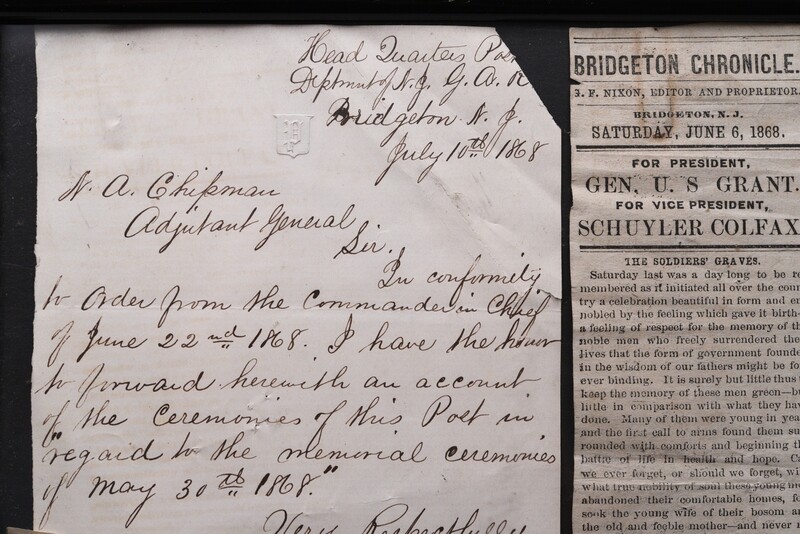 Head Quarters Post
Deptment of N. J. G. A. R
Bridgeton N. J.
July 10th 1868
N. A. Chipman
Adjutant General
Sir.
In conformity
to Order from the Commander in Chief
of June 22nd 1868. I have the honor
to forward herewith an account
of the ceremonies of this Post in
"regard to the memorial ceremonies
of May 30th 1868."
Very Respectfully
BRIDGETON CHRONICLE.
G. F. NIXON, EDITOR AND PROPRIETOR.
BRIDGETON, N. J.
SATURDAY, JUNE 6, 1868.
FOR PRESIDENT,
GEN. U. S GRANT.
FOR VICE PRESIDENT,
SCHUYLER COLFAX
THE SOLDIERS' GRAVES.
Saturday last was a day long to be re
membered as it initiated all over the coun
try a celebration beautiful in form and en
nobled by the feeling which gave it birth—
a feeling of respect for the memory of th
noble men who freely surrendered the
lives that the form of government founde
in the wisdom of our fathers might be fo
ever binding. It is surely but little thus
keep the memory of these men green—b
little in comparison with what they hav
done. Many of them were young in yea
and the first call to arms found them su
rounded with comforts and beginning th
battle of life in health and hope. Ca
we ever forget, or should we forget, wi
what true nobility of soul these young me
abandoned their comfortable homes, fo
sook the young wife of their bosom an
the old and feeble mother—and never